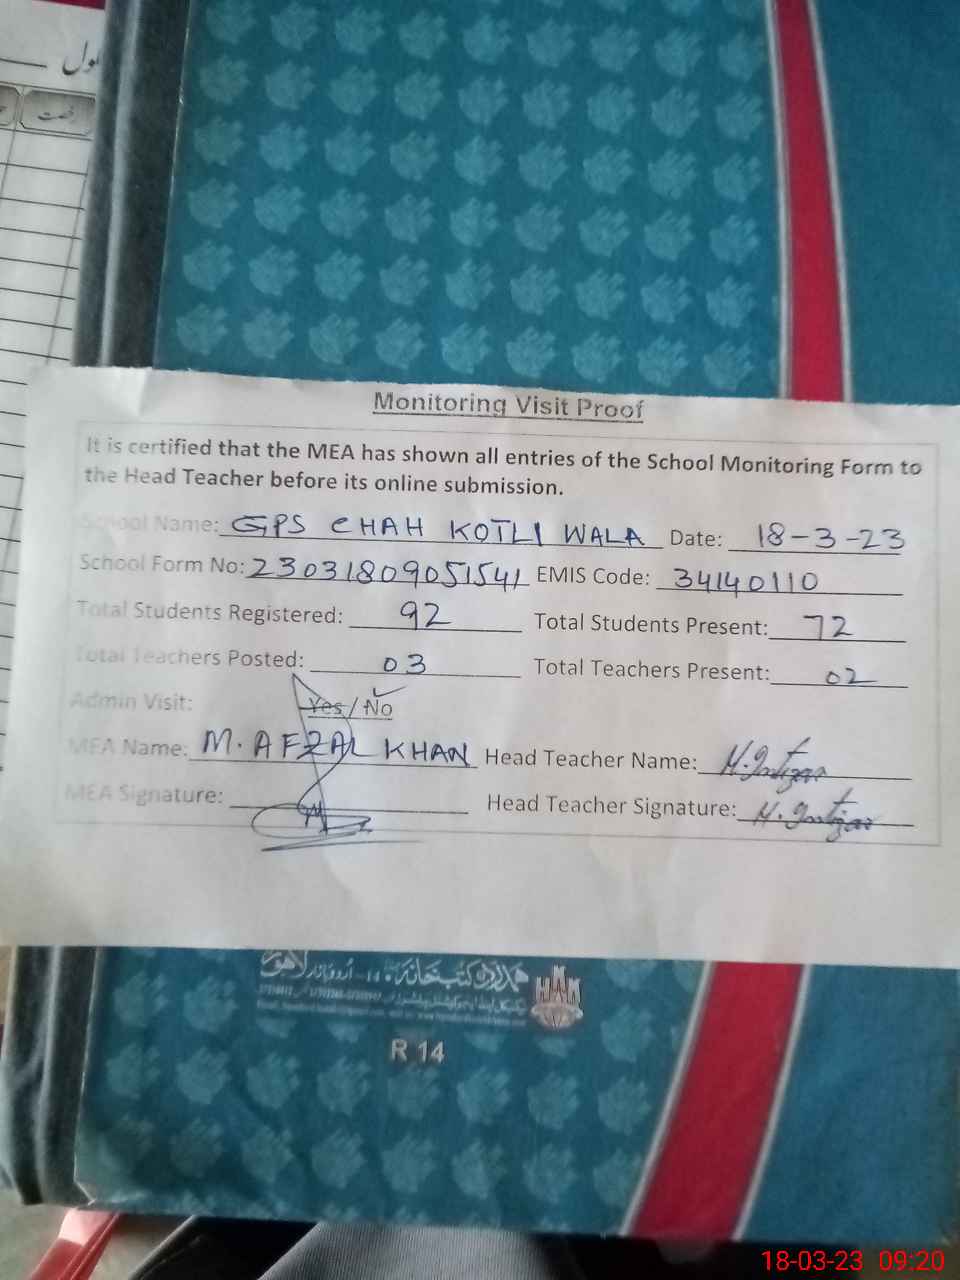 ول
رخصت
Monitoring Visit Proof
It is certified that the MEA has shown all entries of the School Monitoring Form to
the Head Teacher before its online submission.
School Name: GPS CHAH KOTLI WALA Date: 18-3-23
School Form No: 23031809051541 EMIS Code: 34140110
Total Students Registered: 92 Total Students Present: 72
Total Teachers Posted: 03 Total Teachers Present: 02
Admin Visit: Yes / No
MEA Name: M. AFZAL KHAN Head Teacher Name: M. Intizar
MEA Signature: Head Teacher Signature: M. Intizar
اردو بازار لاہور
HKK
R 14
18-03-23 09:20